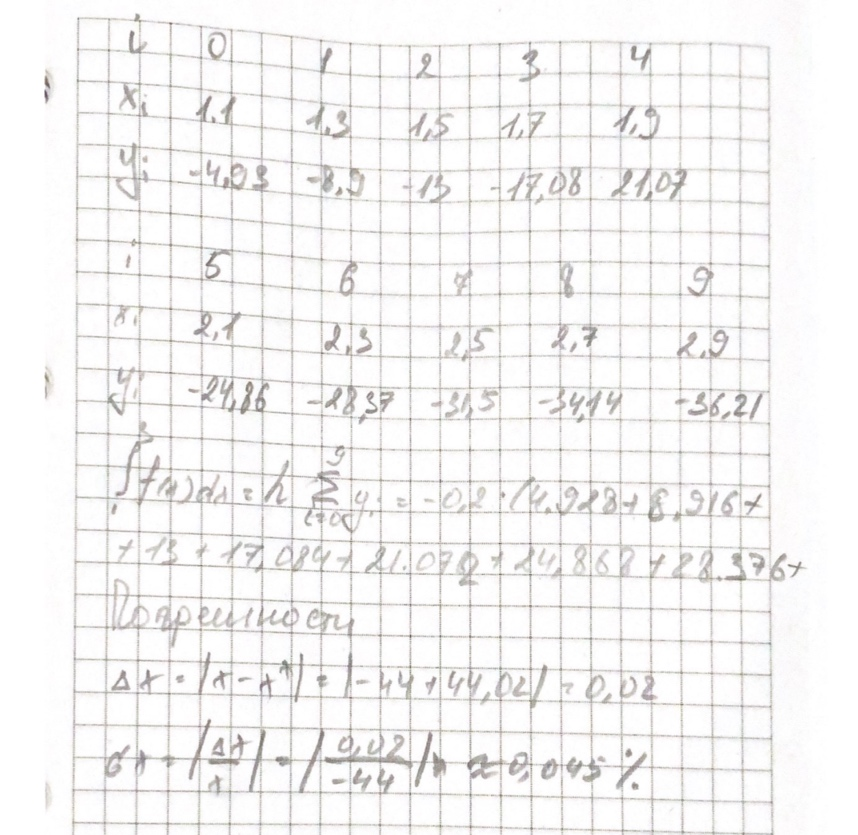 i 0 1 2 3 4
xi 1,1 1,3 1,5 1,7 1,9
yi -4,93 -8,9 -13 -17,08 21,07
i 5 6 7 8 9
xi 2,1 2,3 2,5 2,7 2,9
yi -24,86 -28,37 -31,5 -34,14 -36,21
∫₁³ f(x)dx = h ∑ᵢ₌₀⁹ yi = -0,2·(4.928+8.916+
+13+17,084+21.072+24,868+28.376+
Погрешности
Δx = |x-x*| = |-44+44,02| = 0,02
σx = |Δx/x| = |0,02/-44| ≈ 0,045%